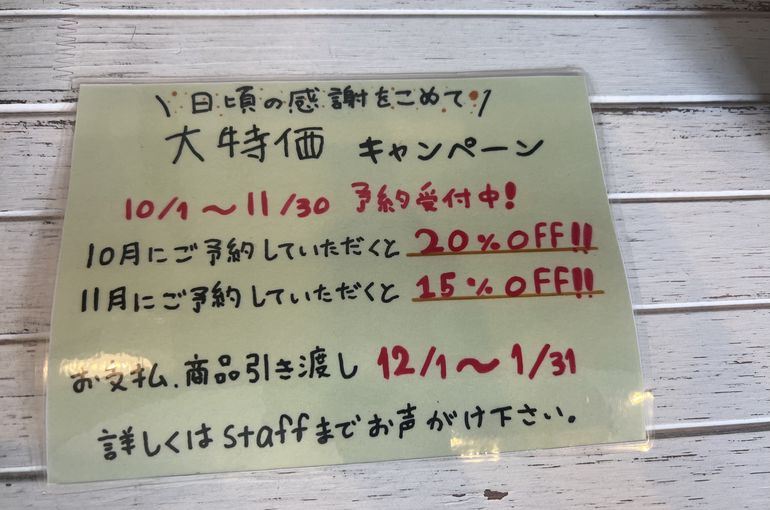 \ 日頃の感謝をこめて /
大特価 キャンペーン
10/1〜11/30 予約受付中!
10月にご予約していただくと 20%OFF!!
11月にご予約していただくと 15%OFF!!
お支払、商品引き渡し 12/1〜1/31
詳しくはstaffまでお声がけ下さい。